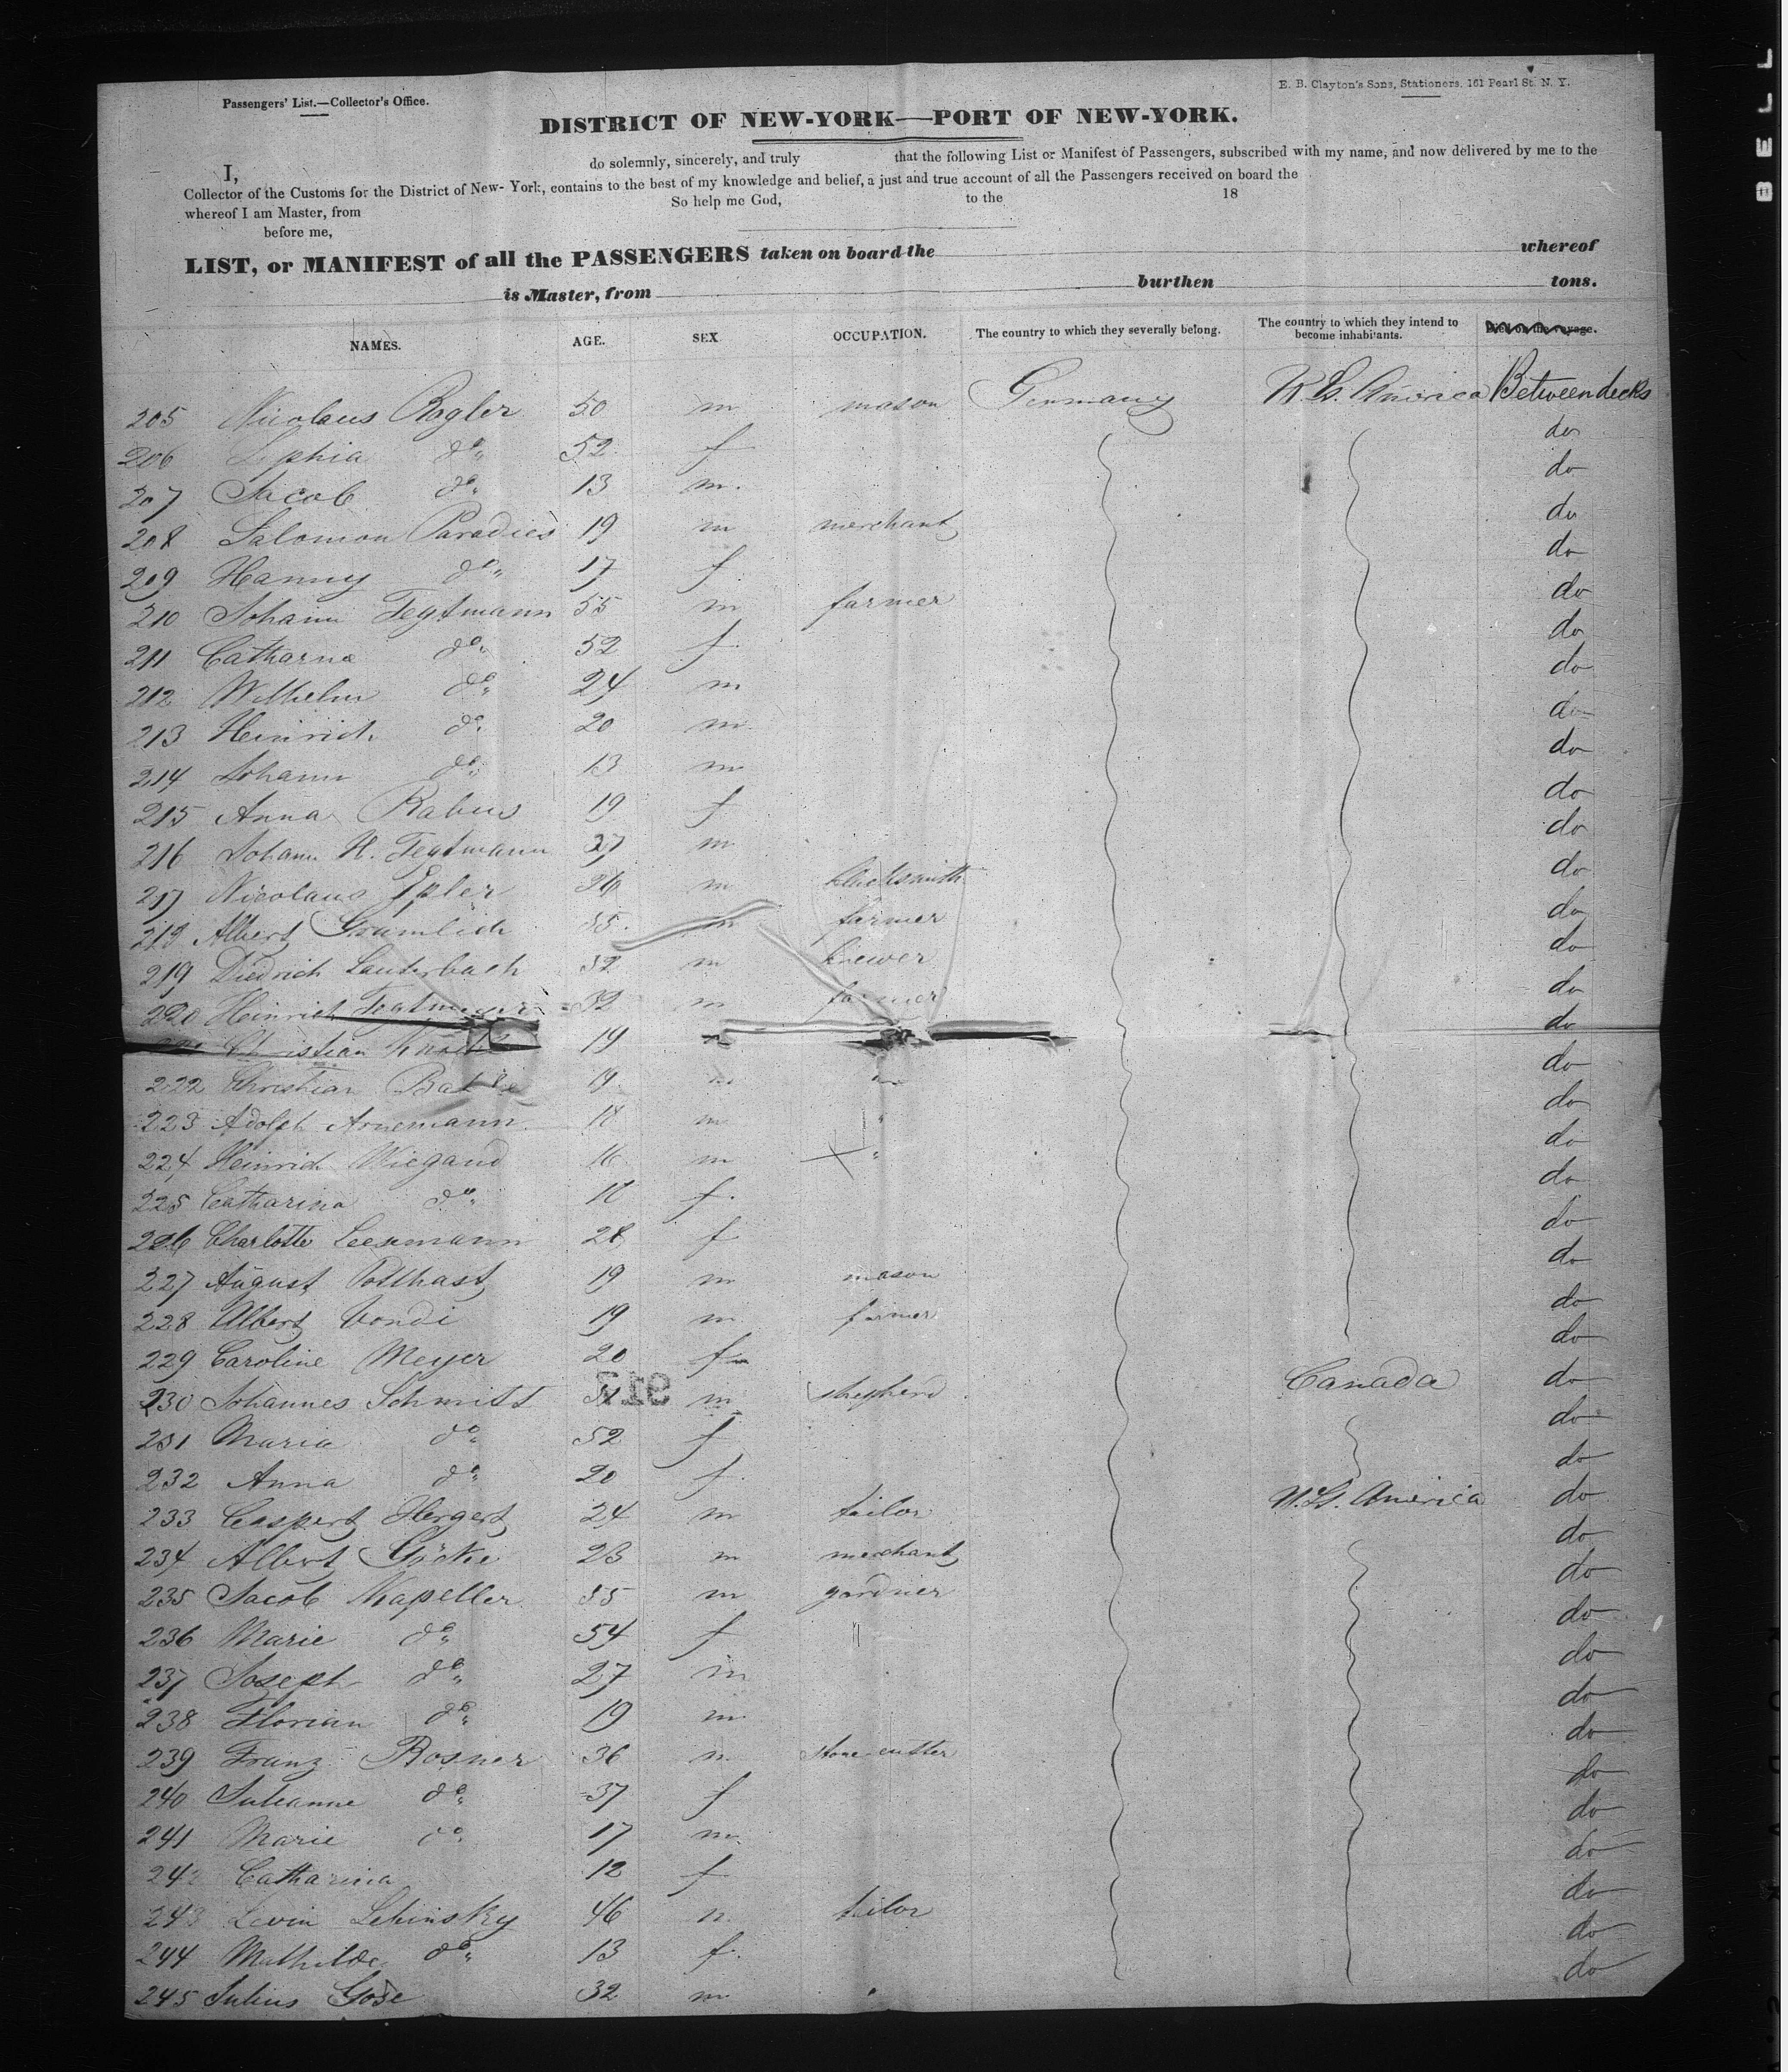 Passengers' List.—Collector's Office.
E. B. Clayton's Sons, Stationers. 161 Pearl St. N. Y.
DISTRICT OF NEW-YORK—PORT OF NEW-YORK.
I, do solemnly, sincerely, and truly that the following List or Manifest of Passengers, subscribed with my name, and now delivered by me to the
Collector of the Customs for the District of New-York, contains to the best of my knowledge and belief, a just and true account of all the Passengers received on board the
whereof I am Master, from So help me God, to the 18
before me,
LIST, or MANIFEST of all the PASSENGERS taken on board the whereof
is Master, from burthen tons.
NAMES. AGE. SEX. OCCUPATION. The country to which they severally belong. The country to which they intend to become inhabitants. Died on the voyage.
205 Nicolaus Ragler 50 m mason Germany U. St. America Between decks
206 Sophia do 52 f do
207 Jacob do 13 m. do
208 Salomon Paradies 19 m merchant do
209 Hanny do 17 f do
210 Johann Tegtmann 55 m farmer do
211 Catharna do 52 f do
212 Wilhelm do 24 m do
213 Heinrich do 20 m do
214 Johann do 13 m do
215 Anna Rabus 19 f do
216 Johann H. Tegtmann 27 m do
217 Nicolaus Epler 26 m blacksmith do
218 Albert Gramlich 35 m farmer do
219 Diedrich Lauterbach 32 m brewer do
220 Heinrich 32 m farmer do
Christian 19 do
222 Christian 19 m " do
223 Adolph Arnemann 18 m " do
224 Heinrich Wiegand 16 m " do
225 Catharina do 18 f. do
226 Charlotte Leesemann 28 f do
227 August Potthast 19 m mason do
228 Albert Vondi 19 m farmer do
229 Caroline Meyer 20 f do
230 Johannes Schmitt m shepherd Canada do
231 Maria do 52 f do
232 Anna do 20 f. do
233 Caspert Hergert 24 m tailor U. St. America do
234 Albert Göcke 23 m merchant do
235 Jacob Kapeller 55 m gardner do
236 Marie do 54 f do
237 Joseph do 27 m do
238 Florian do 19 m do
239 Franz Rosner 36 m stone cutter do
240 Juleanne do 37 f do
241 Marie do 17 m do
242 Catharina 12 f do
243 Levin Lebinsky 46 m tailor do
244 Mathilde do 13 f. do
245 Julius Gose 32 m " do
BELL